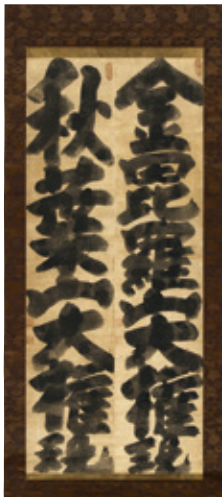 金毘羅山大權現
秋葉山大權現